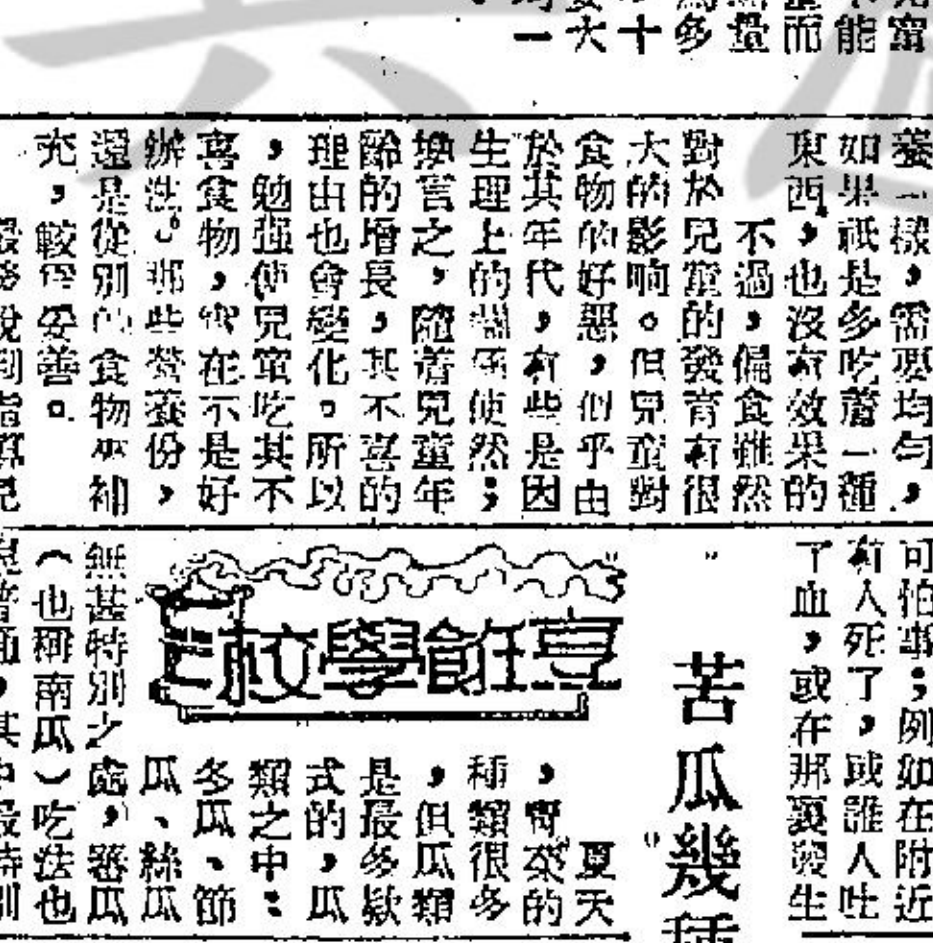 能
而
量
多
十
大
一
養一樣，需要均勻，
如果祇是多吃一種
東西，也沒有效果的
不過，偏食雖然
對於兒童的發育有很
大的影响。但兒童對
食物的好惡，似乎由
於其年代，有些是因
生理上的使然；
換言之，隨着兒童年
齡的增長，其不喜的
理由也會變化。所以
，勉强使兒童吃其不
喜食物，實在不是好
辦法。那些營養份，
還是從別的食物來補
充，較為妥善。
可怕事；例如在附近
有人死了，或誰人吐
了血，或在那裏發生
苦瓜幾種
烹飪學校
夏天
，賣菜的
種類很多
，但瓜類
是最多款
式的，瓜
類之中：
冬瓜、節
瓜、絲瓜
無甚特別之處，番瓜
（也稱南瓜）吃法也